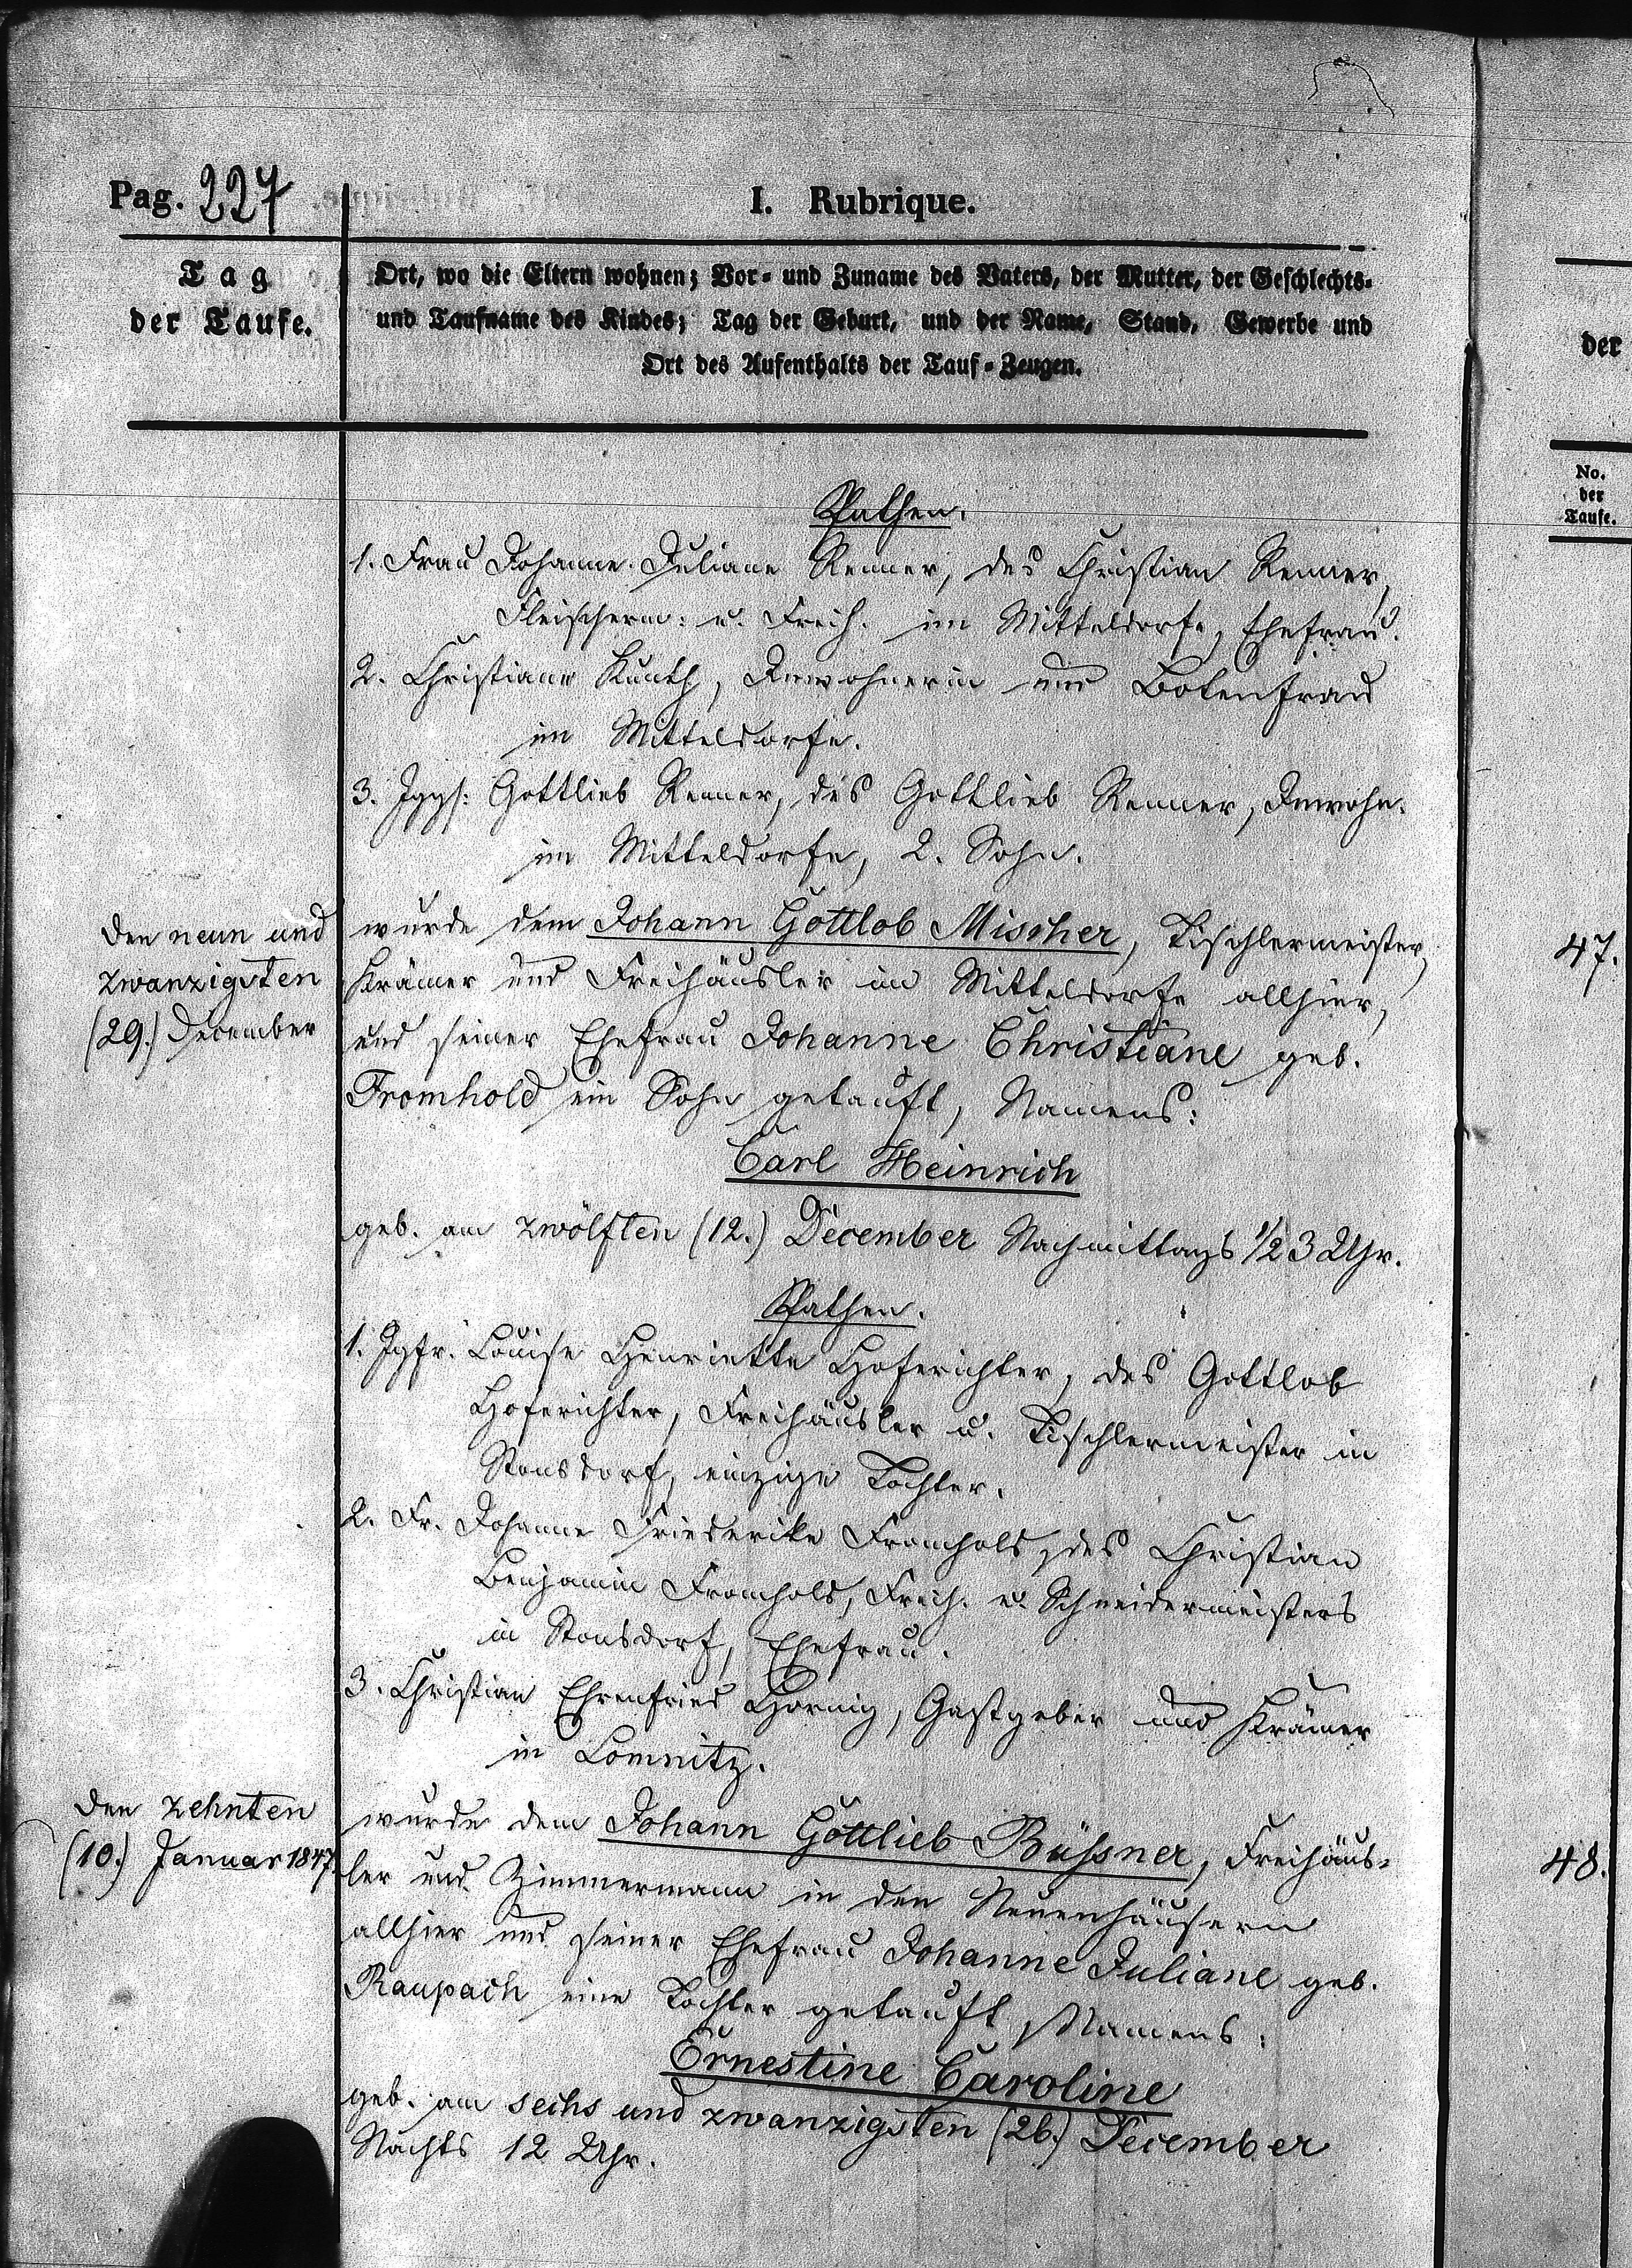 Pag. 227
I. Rubrique.
Tag
der Taufe.
Ort, wo die Eltern wohnen; Vor- und Zuname des Vaters, der Mutter, der Geschlechts-
und Taufname des Kindes; Tag der Geburt, und der Name, Stand, Gewerbe und
Ort des Aufenthalts der Tauf-Zeugen.
der
No.
der
Taufe.
Pathen.
1. Frau Johanne Juliane Renner, des Christian Renner,
Fleischerm: u. Freih. im Mitteldorfe, Ehefrau.
2. Christiane Kunth, Inwohnerin und Botenfrau
im Mitteldorfe.
3. Jggs: Gottlieb Renner, des Gottlieb Renner, Inwohn.
im Mitteldorfe, 2. Sohn.
den neun und
zwanzigsten
(29.) December
wurde dem Johann Gottlob Mischer, Tischlermeister,
Krämer und Freihäusler im Mitteldorfe allhier,
und seiner Ehefrau Johanne Christiane geb.
Fromhold ein Sohn getauft, Namens:
47.
Carl Heinrich
geb. am zwölften (12.) December Nachmittags 1/2 3 Uhr.
Pathen.
1. Jgfr. Louise Henriette Hoferichter, des Gottlob
Hoferichter, Freihäusler u. Tischlermeister in
Stonsdorf, einzige Tochter.
2. Fr. Johanne Friederike Fromhold, des Christian
Benjamin Fromhold, Freih. u. Schneidermeisters
in Stonsdorf, Ehefrau.
3. Christian Ehrenfried Hornig, Gastgeber und Krämer
in Lomnitz.
den zehnten
(10.) Januar 1847.
wurde dem Johann Gottlieb Büßner, Freihäus-
ler und Zimmermann in den Neuenhäusern
allhier und seiner Ehefrau Johanne Juliane geb.
Raupach eine Tochter getauft, Namens:
48.
Ernestine Caroline
geb. am sechs und zwanzigsten (26.) December
Nachts 12 Uhr.